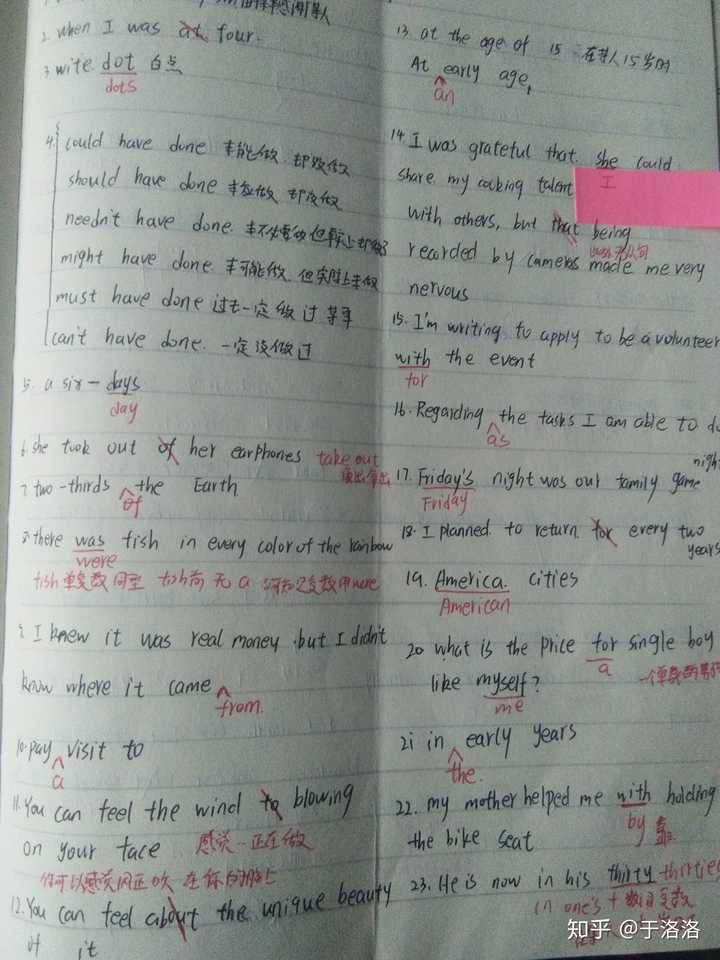 2. when I was at four.
3 write dot 白点
dots
4. could have done 本能做 却没做
should have done 本应做 却没做
needn't have done. 本不必要做 但事实上却做了
might have done. 本可能做 但实际上未做
must have done 过去一定做过某事
can't have done. 一定没做过
5. a six-days
day
6. she took out of her earphones take out
7 two-thirds the Earth
of
8. there was fish in every color of the rainbow
were
fish 单复数同型 fish前 无 a
9. I knew it was real money but I didn't
know where it came
from.
10. pay visit to
a
11. You can feel the wind to blowing
on your face 感觉一正在做
你可以感觉风正吹在你的脸上
12. You can feel about the unique beauty
of it
13. at the age of 15 在某人15岁时
At early age,
an
14. I was grateful that she could
I
share my cooking talent
with others, but that being
recorded by cameras made me very
nervous
15. I'm writing to apply to be a volunteer
with the event
for
16. Regarding the tasks I am able to do
as
night
17. Friday's night was our family game
Friday
18. I planned to return for every two
years
19. America cities
American
20 what is the price for single boy
a
like myself?
me
21 in early years
the.
22. my mother helped me with holding
by 靠
the bike seat
23. He is now in his thirty thirties
in one's + 数词复数
知乎 @于洛洛